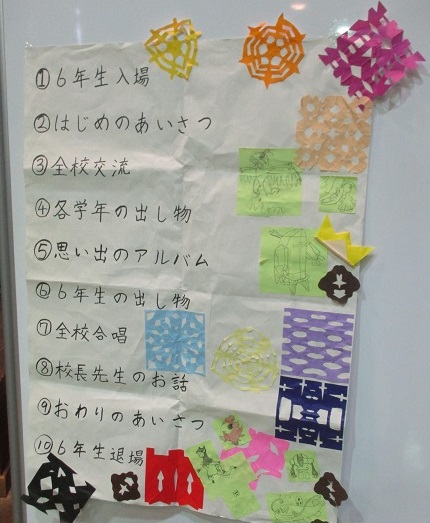 ①6年生入場
②はじめのあいさつ
③全校交流
④各学年の出し物
⑤思い出のアルバム
⑥6年生の出し物
⑦全校合唱
⑧校長先生のお話
⑨おわりのあいさつ
⑩6年生退場